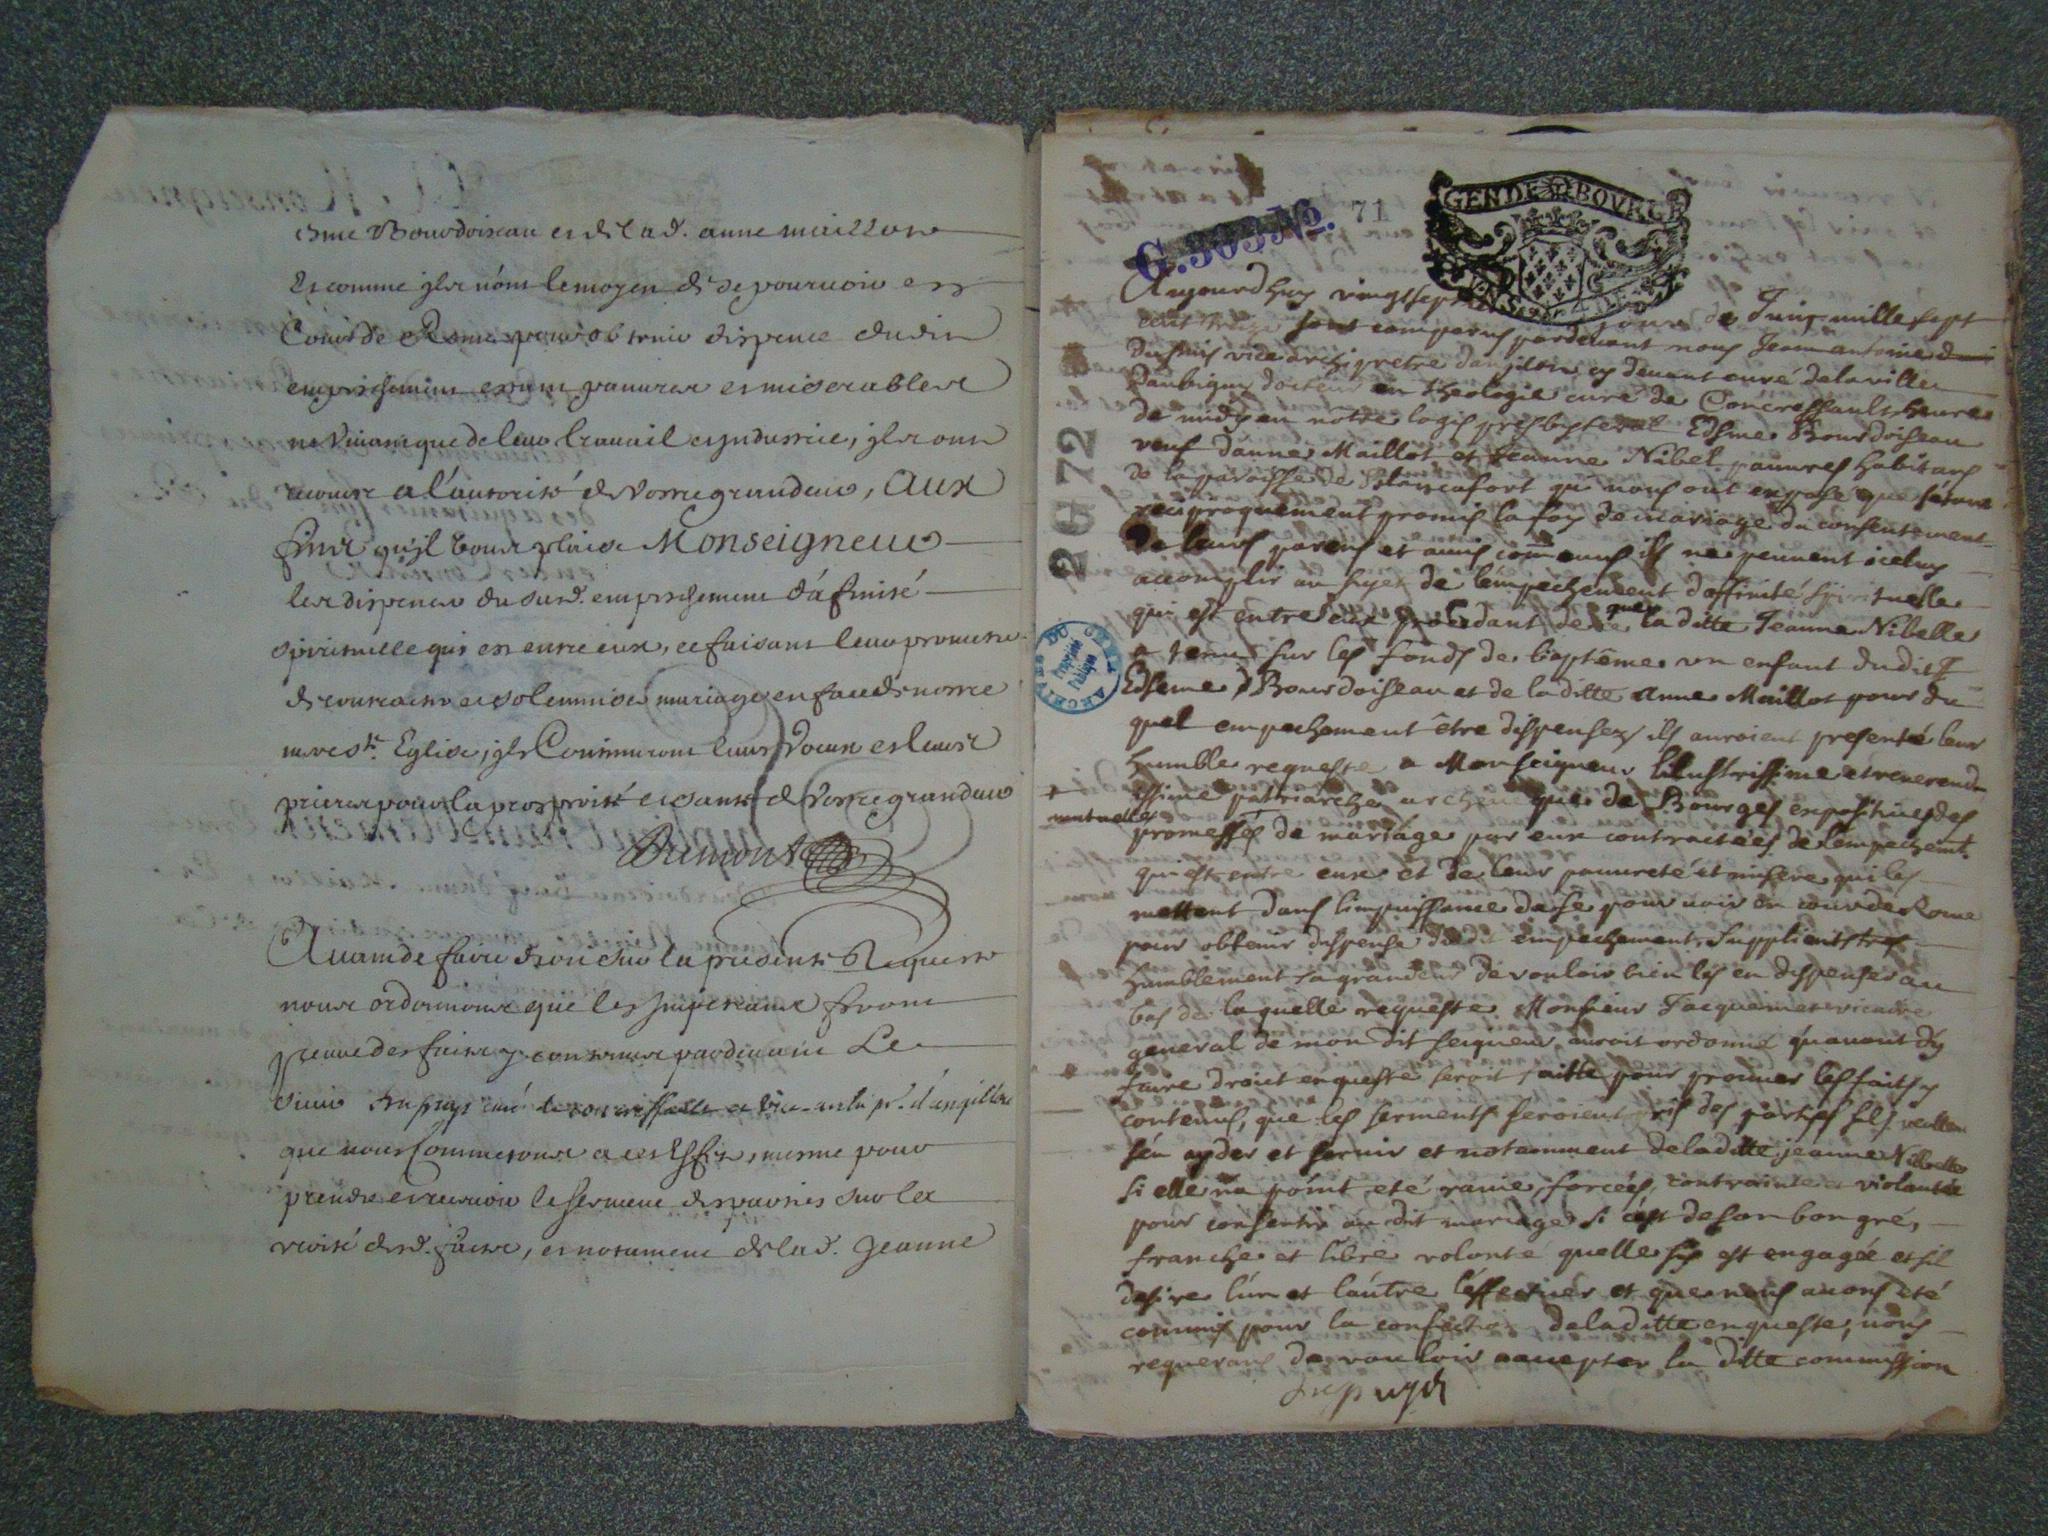 esme Bourdoiseau et de lad. anne maillon
Et comme ils n'ont le moyen de se pourvoir en
Cour de Rome pour obtenir dispence dudit
empeschement estant pauvres et miserables
ne vivant que de leur travail et industrie, ils ont
recours a l'autorité de Vostre grandeur, Aux
fins qu'il vous plaise Monseigneur
les dispenser du susd. empeschement d'afinité
spirituelle qui est entre eux, ce faisant leur promettre
de contracter et solemniser mariage en face de nostre
mere ste. Eglise, ils Continueront leurs voeux et leurs
prieres pour la prosperité et santé de Vostre grandeur
Dumont
Avant de faire droit sur la presente Requeste
nous ordonnons que les Impetrans feront
preuve des faits y contenus pardevant Le
sieur Dupuys curé de concressault et vice-archi pr. d'angillon
que nous Commetons a cet Effet, mesme pour
prendre et recevoir le serment des parties sur la
verité desd. faits, et notament de lad. Jeanne
G.303No. 71
GEN DE BOURGE
2G72
ARCHIVES DU CHER
Propriété Publique
Aujourdhuy vingt sept jour de Juin mille sept
cent treize sont comparus pardevant nous Jean antoine
Dupuis vice archipretre dangilon cy devant curé de la ville
Daubigny docteur en theologie curé de Concressault heure
de midy en notre logis presbyteral Edsme Bourdoiseau
veuf danne Maillot et Jeanne Nibel pauvres habitans
de la paroisse de Blancafort qui nous ont exposé que sétant
reciproquement promis la foy de mariage du consentement
de leurs parens et amis communs ils ne peuvent iceluy
accomplir au sujet de lempechement daffinité spirituelle
qui est entre eux procedant de ce que la ditte Jeanne Nibelle
a tenu sur les fonds de baptême un enfant dudit
Edseme Bourdoiseau et de la ditte Anne Maillot pour du
quel empechement être dispensez ils auroient presenté leur
humble requeste a Monseigneur lillustrissime et reverend
issime patriarche archeveque de Bourges expositive des
mutuelles
promesses de mariage par eux contractées de lempechemt.
qui est entre eux et de leur pauvreté et misere qui les
mettent dans limpuissance de se pourvoir en cour de Rome
pour obtenir dispense du dit empechement, supplient tres
humblement sa grandeur de vouloir bien les en dispenser au
bas de laquelle requeste Monsieur Jacquemet vicaire
general de mon dit seigneur auroit ordonné quavant dy
faire droict enqueste seroit faitte pour prouver les faits y
contenus, que les serments seroient pris des parties sils veullen
sén ayder et servir et notamment de la ditte jeanne Nibelle
si elle na point eté ravie, forcées, contrainte et violantée
pour consentir au dit mariage si c'est de son bon gré,
franche et libre volonté quelle sy est engagée et sil
desire l'un et lautre leffectuer et que nous avons eté
commis pour la confection de la ditte enqueste, nous
requerans de vouloir accepter la ditte commission
Dupuys